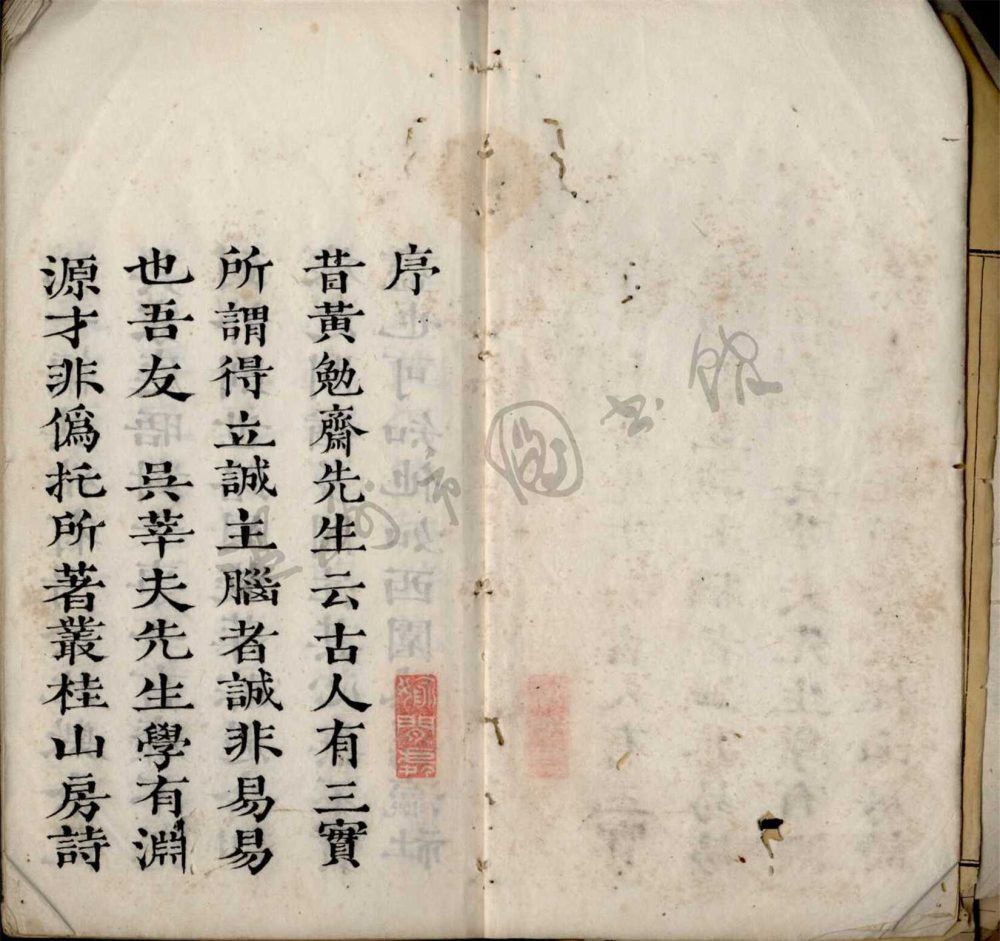 序
昔黃勉齋先生云古人有三實
所謂得立誠主腦者誠非易易
也吾友 吳莘夫先生學有淵
源才非僞托所著叢桂山房詩